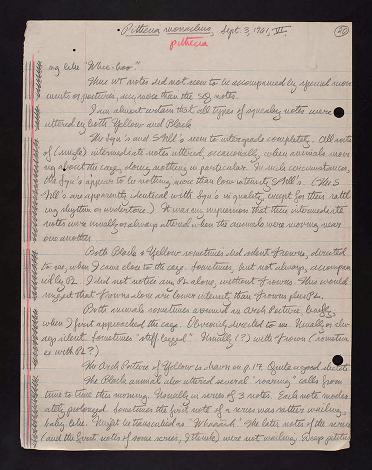 Pithecia monachus, Sept. 3, 1961, VI
20
Pithecia
ing like "Whee-hoo".
These WT notes did not seem to be accompanied by special move
ments or postures, any more than the SQ notes.
I am almost certain that all types of squealing notes were
uttered by both Yellow and Black
The Squ's and S Fill's seem to intergrade completely. All sorts
of (single) intermediate notes uttered, occasionally, when animals mov
ing about the cage, doing nothing in particular. In such circumstances,
the Squ's appear to be nothing more than low intensity S Fill's. (The S
Fill's are apparently identical with Squ's in quality, except for their rattl
ing rhythm or undertone.) It was my impression that these intermediate
notes were usually or always uttered when the animals were moving near
one another
Both Black & Yellow sometimes did silent Frowns, directed
to me, when I came close to the cage. Sometimes, but not always, accompan
ied by P2. I did not notes any P2 alone, without Frowns. This would
suggest that Frowns alone are lower intensity than Frowns plus P2.
Both animals sometimes assumed an Arch Posture, briefly,
when I first approached the cage. Obviously directed to me. Usually or alw
ays silent. Sometimes "stiff legged". Usually (?) with Frown (sometim
es with P2?)
The Arch Posture of Yellow is drawn on p. 17. Quite a good sketch
The Black animal also uttered several "roaring" calls from
time to time this morning. Usually in series of 3 notes. Each note moder
ately prolonged. Sometimes the first note of a series was rather wailing,
baby like. Might be transcribed as "Whaaaah". The later notes of the series
(and the first notes of some series, I think) were not wailing. Deep